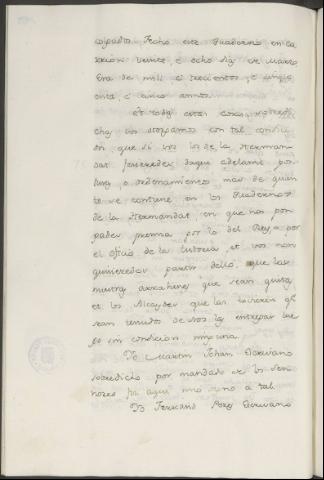 cojpados. Fecho este Quaderno en Ca
rrion veinte, e ocho dias de Marzo
Era de mill e trecientos, e cinque
enta, e cinco annos.
Et todas estas cosas sobredi
chas vos otorgamos con tal condici
on que si vos los de la Herman
dat ficieredes daqui adelante pos
tura o ordenamiento mas de quan
to se contiene en los Quadernos
de la Hermandat en que nos pon
gades premia por lo del Rey, o por
el oficio de la tutoria et vos non
quisieredes partir dello, que las
nuestras arrahenes que sean quitas
et los Alcaydes que las tovieren qe
sean tenudos de nos las entregar lue
go sin condicion ninguna.
Yo Martin Johan Escrivano
sobredicho por mandado de los Sen
nores fiz aqui mio sino a tal
Yo Ferrand Perez Escrivano